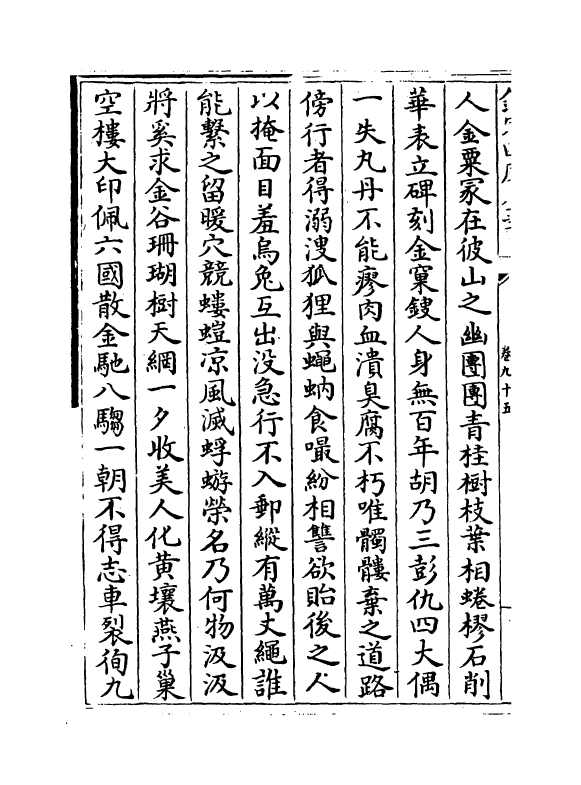 卷九十五
人金粟冢在彼山之幽團團青桂樹枝葉相蜷樛石削
華表立碑刻金窠鎪人身無百年胡乃三彭仇四大偶
一失丸丹不能瘳肉血潰臭腐不朽唯髑髏棄之道路
傍行者得溺溲狐狸與蠅蚋食嘬紛相讐欲貽後之人
以掩面目羞烏兔互出没急行不入郵縱有萬丈繩誰
能繫之留暖穴競螻螘凉風滅蜉蝣榮名乃何物汲汲
將奚求金谷珊瑚樹天網一夕收美人化黄壤燕子巢
空樓大印佩六國散金馳八騶一朝不得志車裂徇九